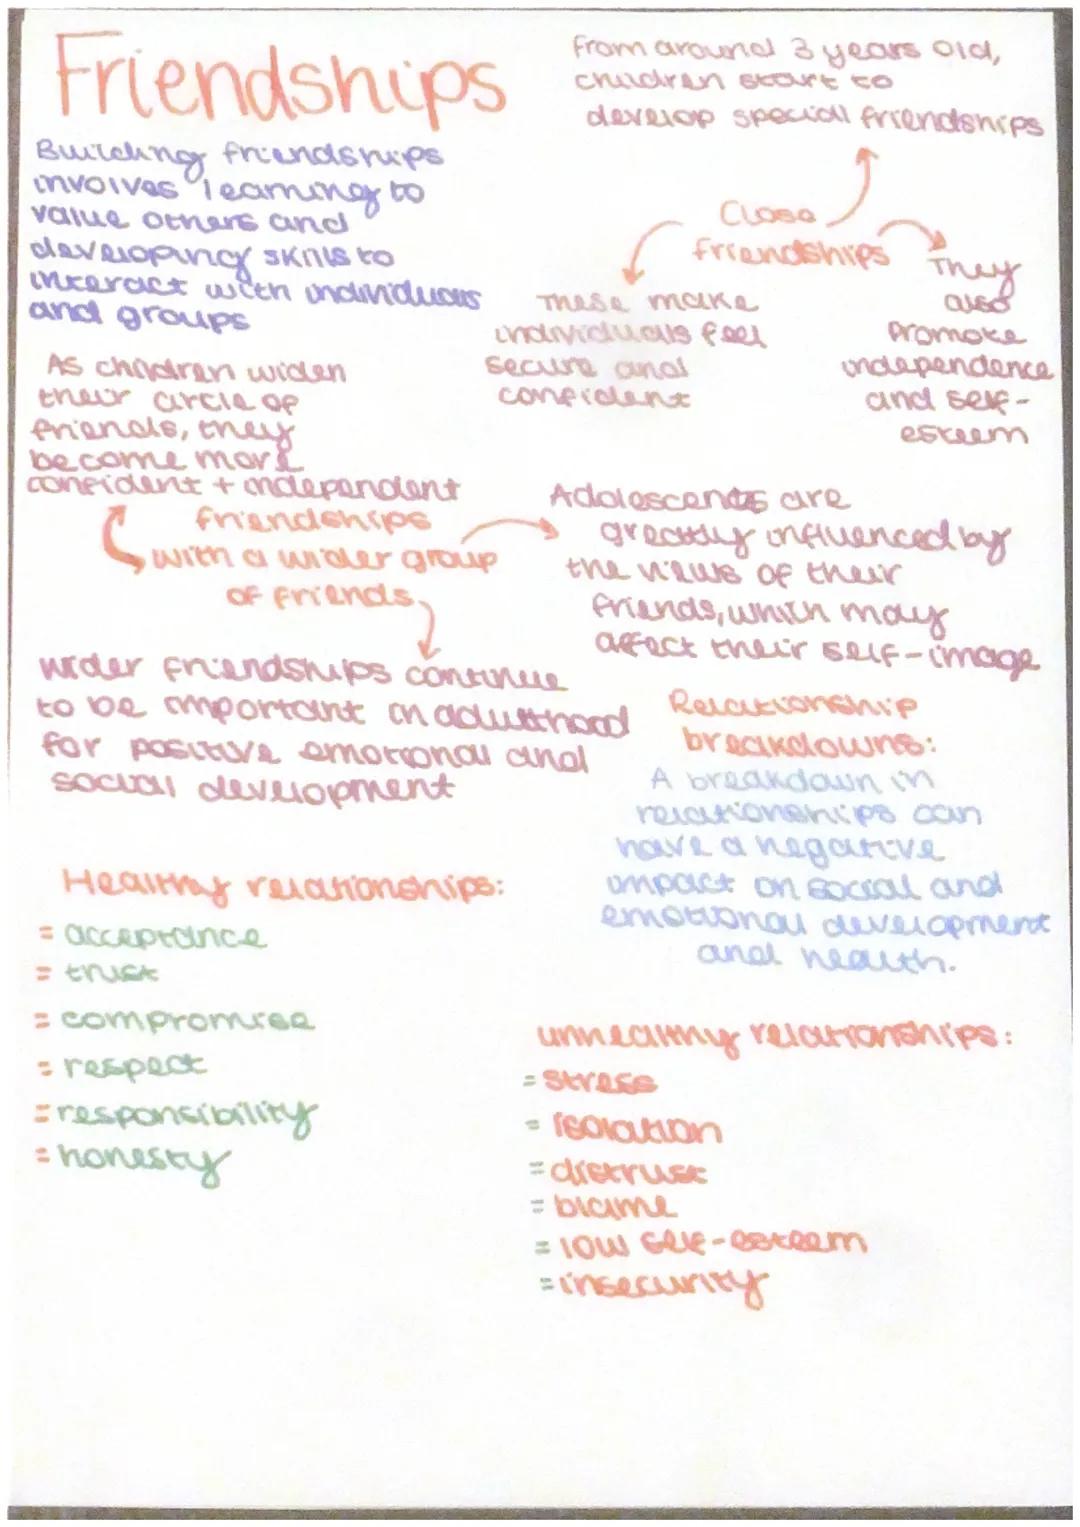 Friendships
Building friendships
involves learning to
value others and
developing skills to
interact with individuals
and groups
From around 3 years old,
children start to
develop special friendships
Close
friendships
These make
individuals feel
secure and
confident
They
also
promote
independence
and self-
esteem
As children widen
their circle of
friends, they
become more
confident + independent
friendships
with a wider group
of friends
Adolescents are
greatly influenced by
the views of their
friends, which may
affect their self-image
wider friendships continue
to be important in adulthood
for positive emotional and
social development
Relationship
breakdowns:
A breakdown in
relationships can
have a negative
impact on social and
emotional development
and health.
Healthy relationships:
= acceptance
= trust
= compromise
= respect
= responsibility
= honesty
unhealthy relationships:
= stress
= isolation
= distrust
= blame
= low self-esteem
= insecurity